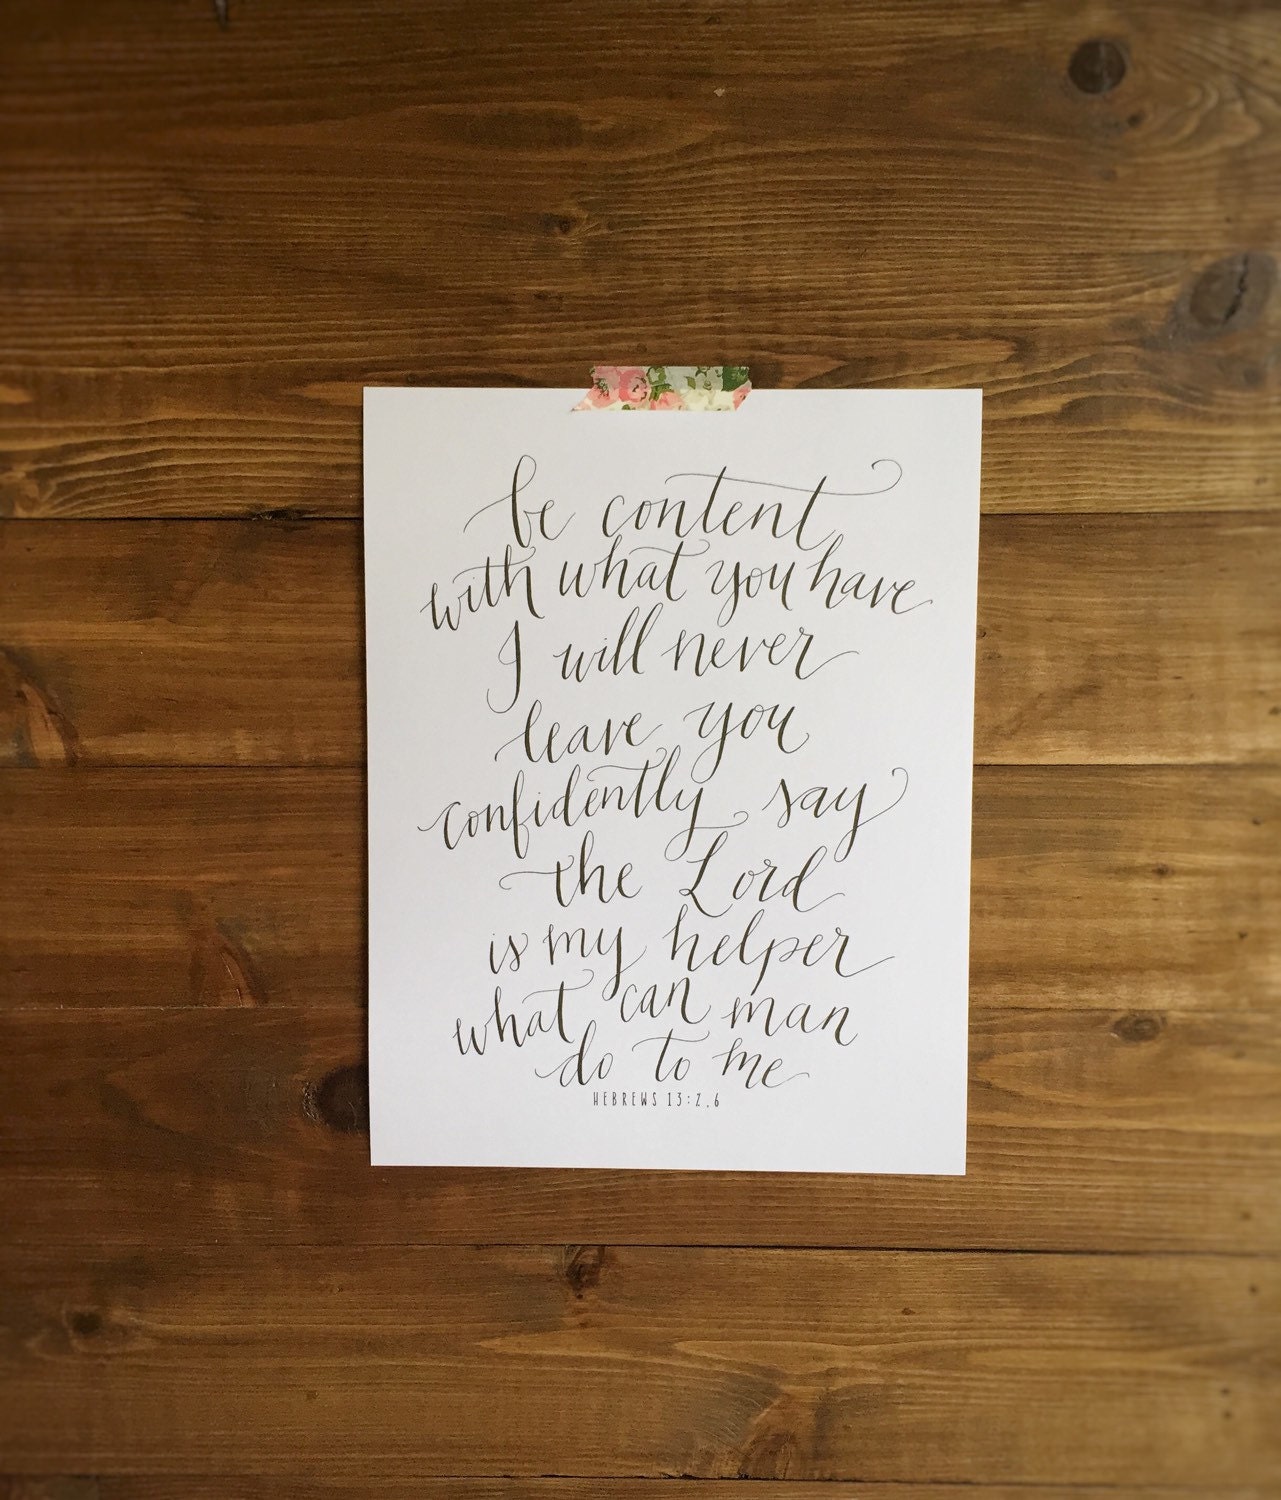 be content
with what you have
I will never
leave you
confidently say
the Lord
is my helper
what can man
do to me
HEBREWS 13:2,6